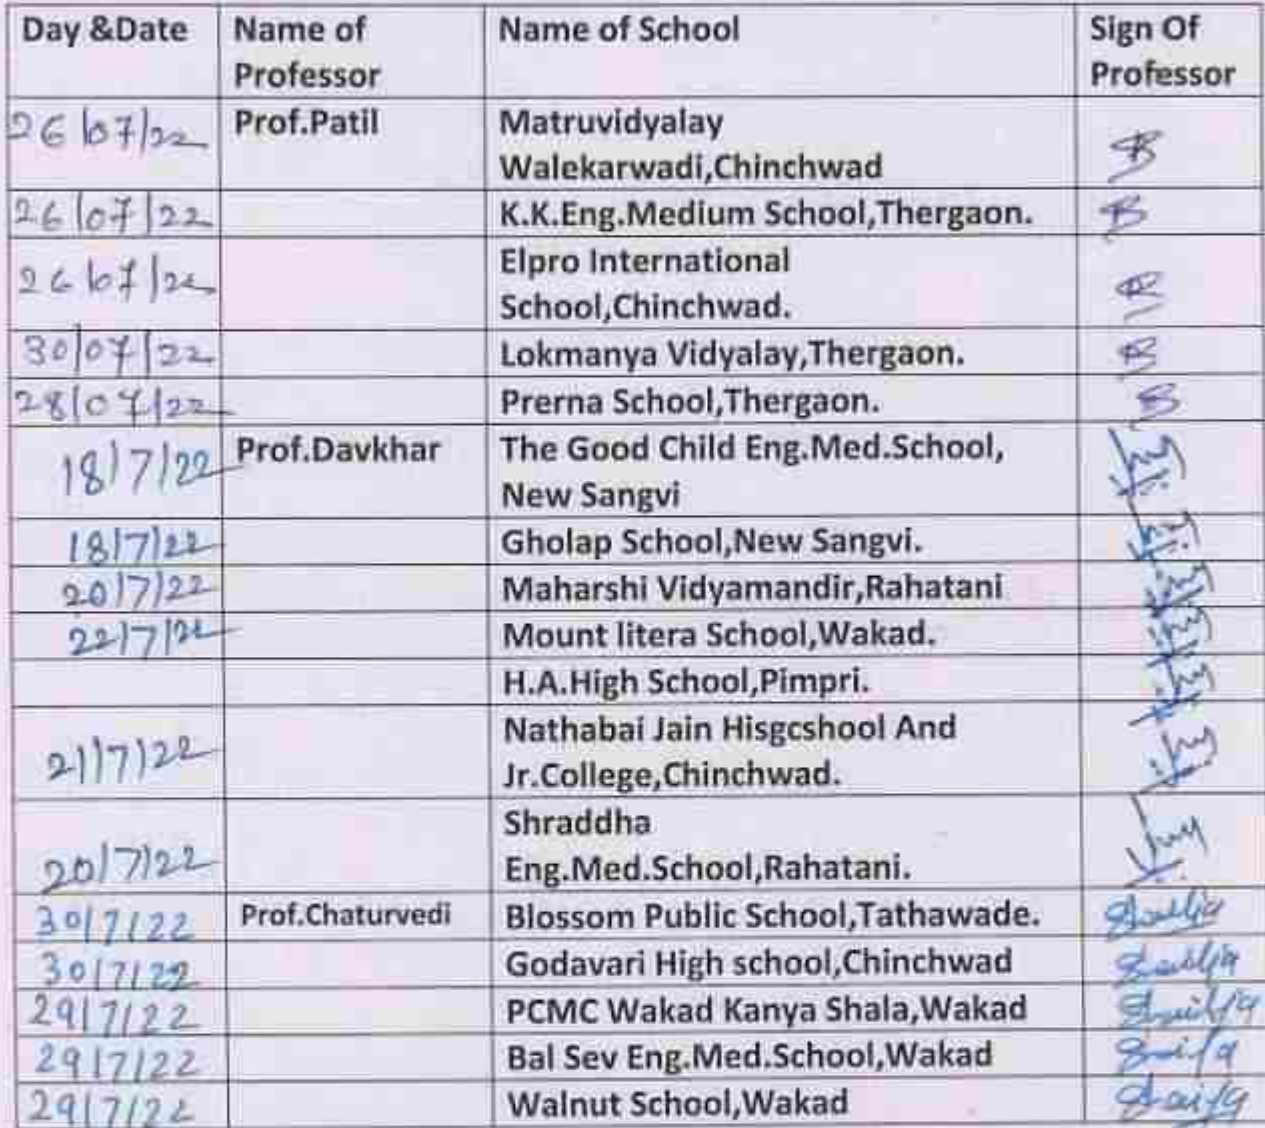 Day &Date Name of Name of School Sign Of
Professor Professor
26/07/22 Prof.Patil Matruvidyalay
Walekarwadi,Chinchwad
26/07/22 K.K.Eng.Medium School,Thergaon.
26/07/22 Elpro International
School,Chinchwad.
30/07/22 Lokmanya Vidyalay,Thergaon.
28/07/22 Prerna School,Thergaon.
18/7/22 Prof.Davkhar The Good Child Eng.Med.School,
New Sangvi
18/7/22 Gholap School,New Sangvi.
20/7/22 Maharshi Vidyamandir,Rahatani
22/7/22 Mount litera School,Wakad.
H.A.High School,Pimpri.
21/7/22 Nathabai Jain Hisgcshool And
Jr.College,Chinchwad.
Shraddha
20/7/22 Eng.Med.School,Rahatani.
30/7/22 Prof.Chaturvedi Blossom Public School,Tathawade.
30/7/22 Godavari High school,Chinchwad
29/7/22 PCMC Wakad Kanya Shala,Wakad
29/7/22 Bal Sev Eng.Med.School,Wakad
29/7/22 Walnut School,Wakad